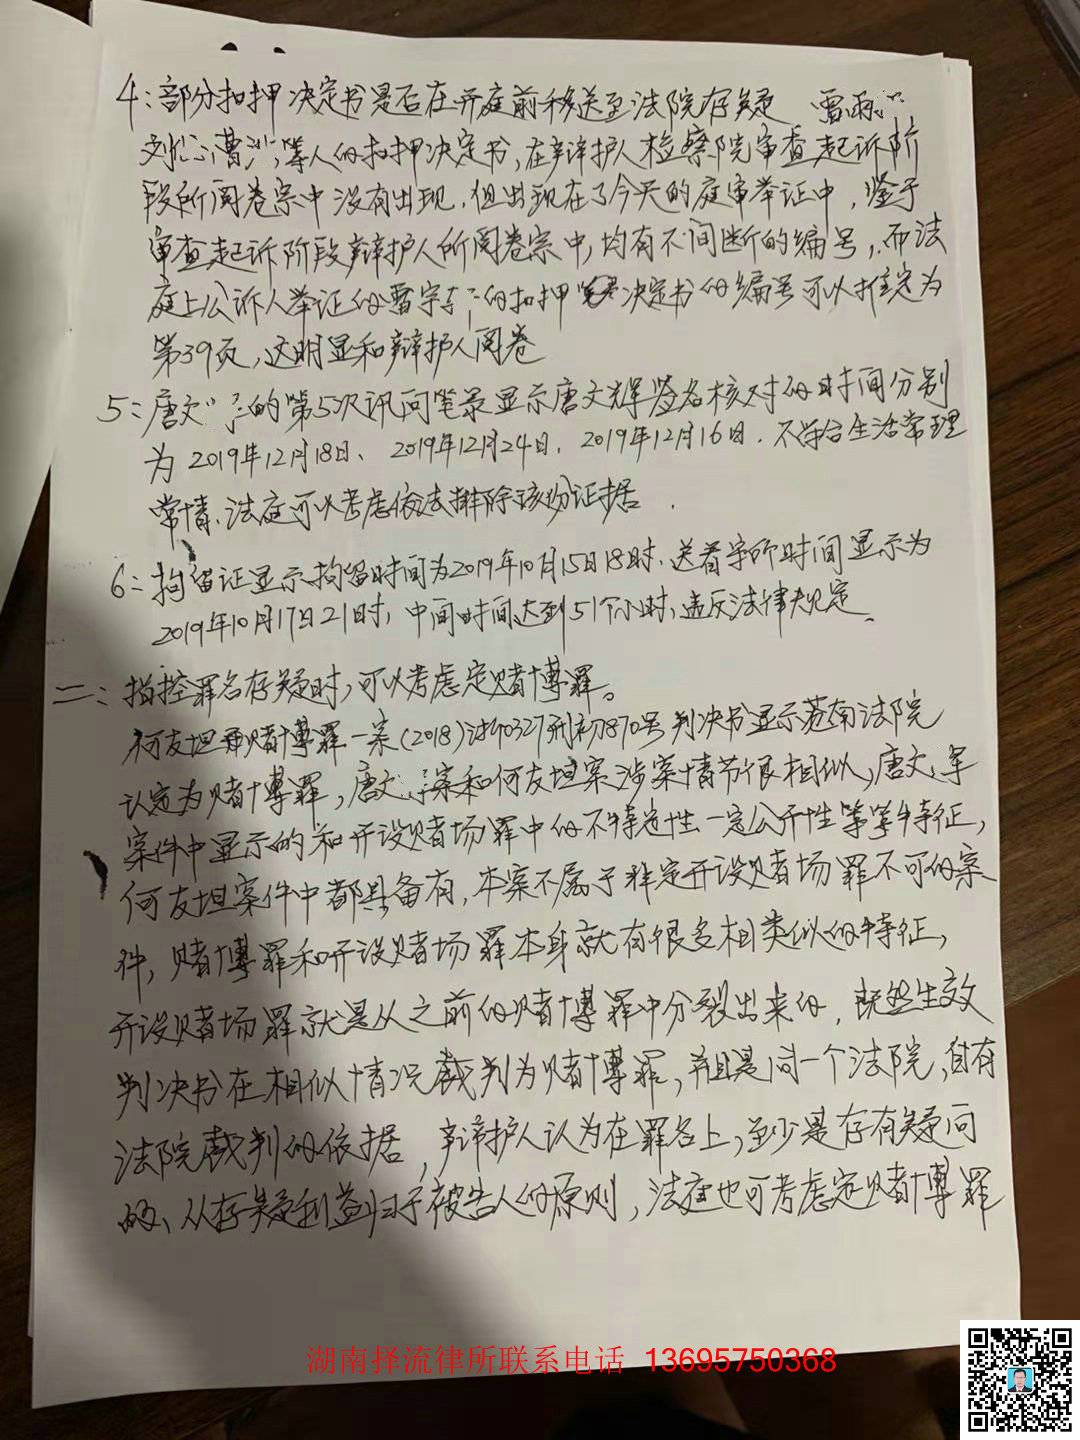 4：部分扣押决定书是否在开庭前移送至法院存疑 雷雨
刘 曹 等人的扣押决定书，在辩护人检察院审查起诉阶
段所阅卷宗中没有出现，但出现在了今天的庭审举证中，鉴于
审查起诉阶段辩护人所阅卷宗中，均有不间断的编号，而法
庭上公诉人举证的雷宇 的扣押 决定书的编号可以推定为
第39页，这明显和辩护人阅卷
5：唐文 的第5次讯问笔录显示唐文辉签名核对的时间分别
为2019年12月18日、2019年12月24日、2019年12月16日，不符合生活常理
常情，法庭可以考虑依法排除该份证据．
6：拘留证显示拘留时间为2019年10月15日18时，送看守所时间显示为
2019年10月17日21时，中间时间达到51个小时，违反法律规定。
二：指控罪名存疑时，可以考虑定赌博罪。
何友坦 赌博罪一案（2018）浙0327刑初870号判决书显示苍南法院
认定为赌博罪，唐文 案和何友坦案涉案情节很相似，唐文
案件中显示的和开设赌场罪中的不特定性一定公开性等等特征，
何友坦案件中都具备有，本案不属于非定开设赌场罪不可的案
件，赌博罪和开设赌场罪本身就有很多相类似的特征，
开设赌场罪就是从之前的赌博罪中分裂出来的，既然生效
判决书在相似情况裁判为赌博罪，并且是同一个法院，自有
法院裁判的依据，辩护人认为在罪名上，至少是存有疑问
的、从存疑利益归于被告人的原则，法庭也可考虑定赌博罪
湖南择流律所联系电话 13695750368